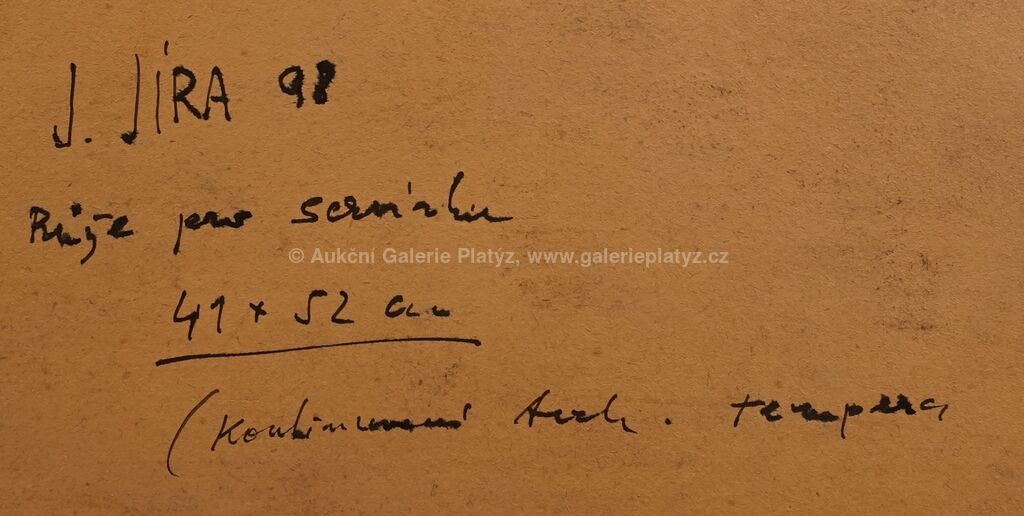 J. JÍRA 91
Růže pro
© Aukční Galerie Platýz, www.galerieplatyz.cz
41 x 52 cm
(Kombinovaná tech. tempera